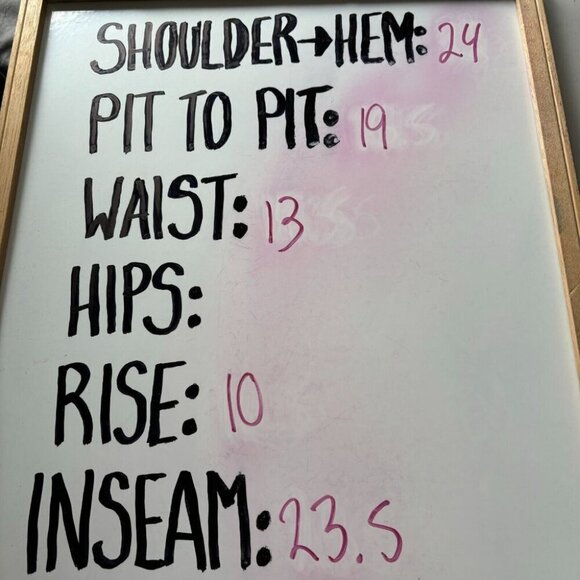 SHOULDER→HEM: 24
PIT TO PIT: 19
WAIST: 13
HIPS:
RISE: 10
INSEAM: 23.5